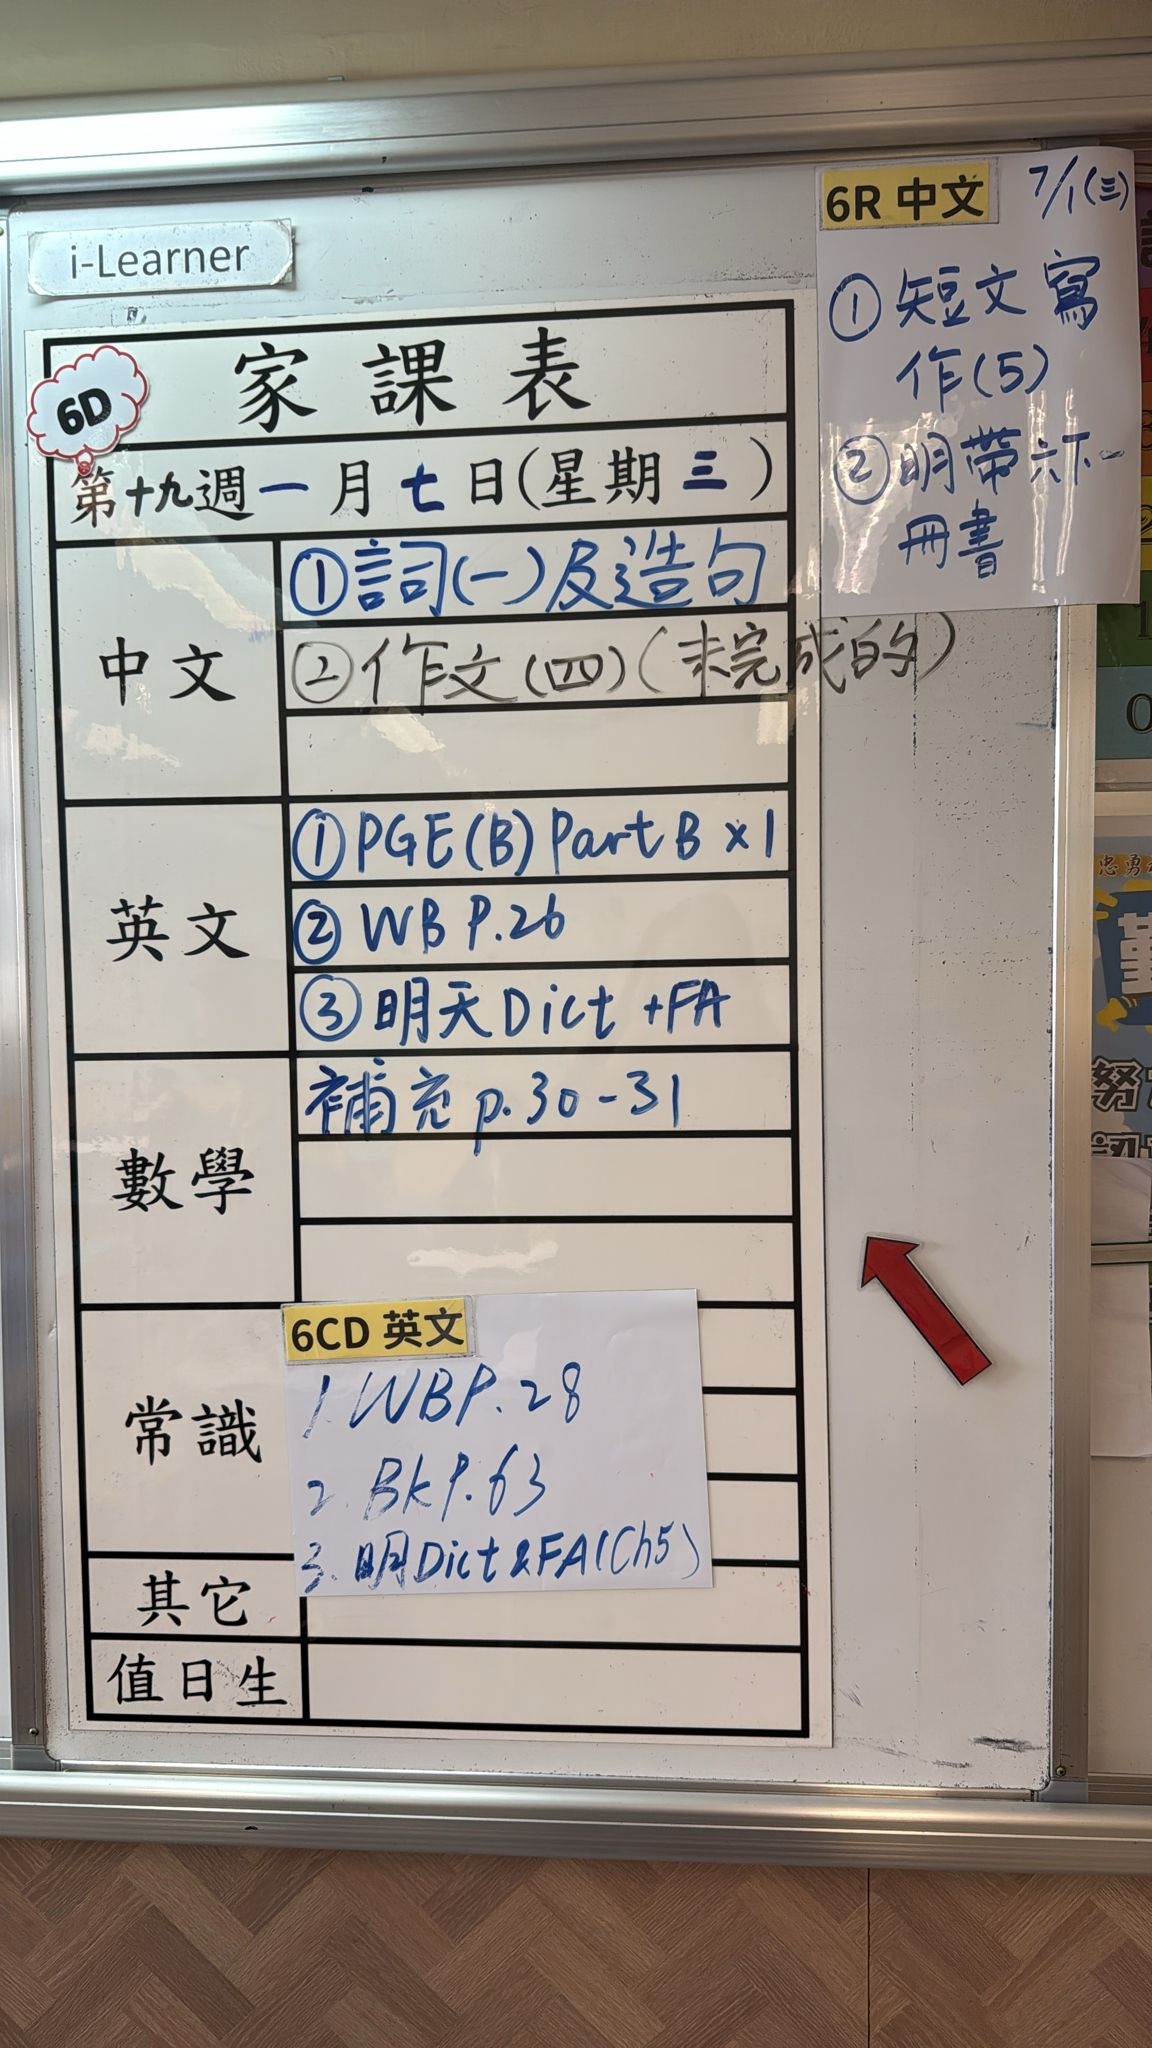 i-Learner
6D
家課表
第十九週一月七日(星期三)
中文
①詞(一)及造句
②作文(四)(未完成的)
英文
①PGE(B) Part B x1
②WB P.26
③明天Dict +FA
數學
補充p.30-31
常識
6CD 英文
1. WBP.28
2. BkP.63
3. 明Dict & FA(Ch5)
其它
值日生
6R 中文 7/1(三)
①短文寫
作(5)
②明帶六下一
冊書
忠勇
努
0